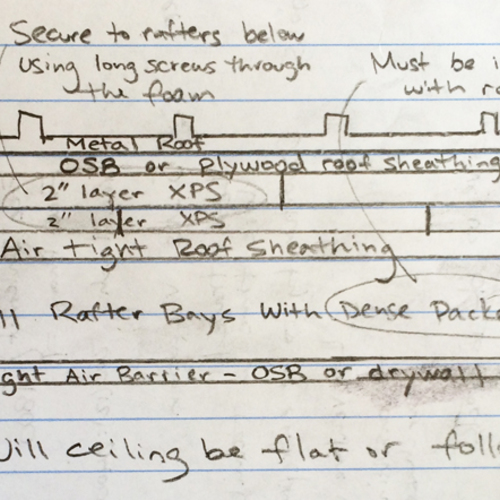 Secure to rafters below
using long screws through
the foam
Must be i
with ro
Metal Roof
OSB or Plywood roof sheathing
2" layer XPS
2" layer XPS
Air tight Roof Sheathing
ll Rafter Bays with Dense Packe
ght Air Barrier - OSB or drywall
Will ceiling be flat or foll